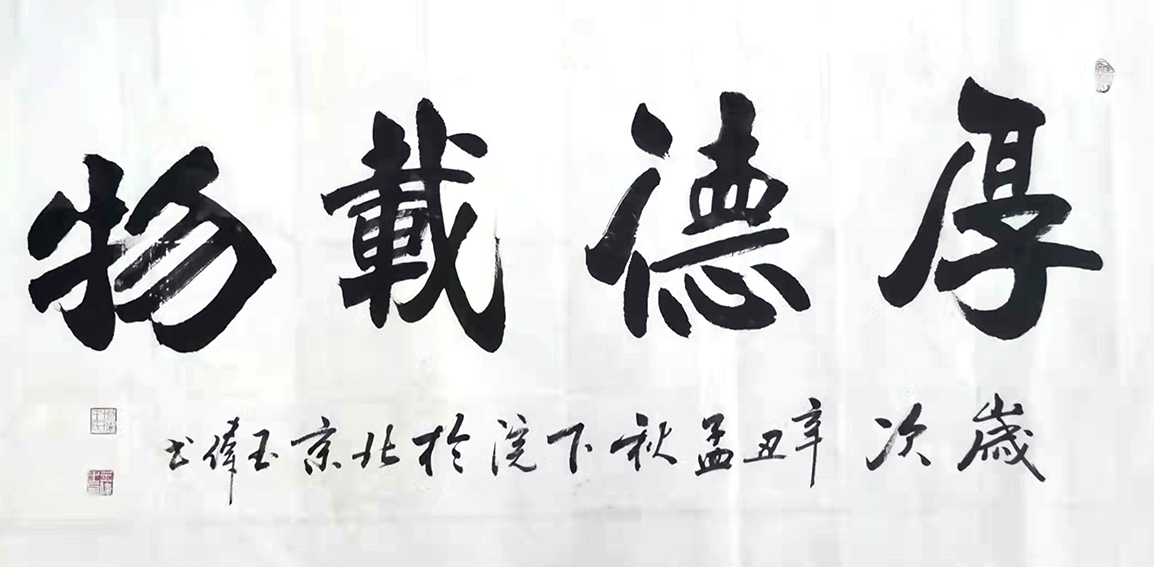 厚德載物
歲次辛丑孟秋下浣於北京玉偉书